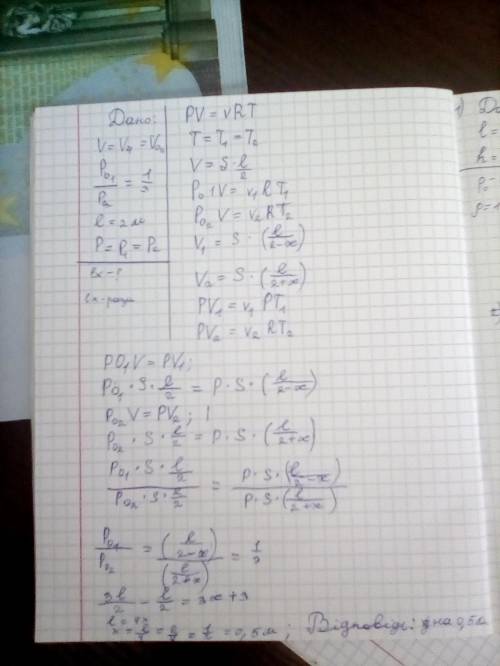 Дано:
V = V₁ = V₀₂
P₀₁/P₂ = 1/3
l = 2 м
P = P₁ = P₂
lx - ?
PV = νRT
T = T₁ = T₂
V = S · l/2
P₀₁V = ν₁RT₁
P₀₂V = ν₂RT₂
V₁ = S · (l/2-x)
V₂ = S · (l/2+x)
PV₁ = ν₁PT₁
PV₂ = ν₂RT₂
PO₁V = PV₁;
P₀₁ · S · l/2 = P · S · (l/2-x)
P₀₂V = PV₂;
P₀₂ · S · l/2 = P · S · (l/2+x)
P₀₁ · S · l/2 / P₀₂ · S · l/2 = P · S · (l/2-x) / P · S · (l/2+x)
P₀₁/P₀₂ = (l/2-x)/(l/2+x) = 1/3
3l/2 - l/2 = 3x + 3
l = 4x
x = l/4 = 2/4 = 1/2 = 0,5м; Відповідь: на 0,5м